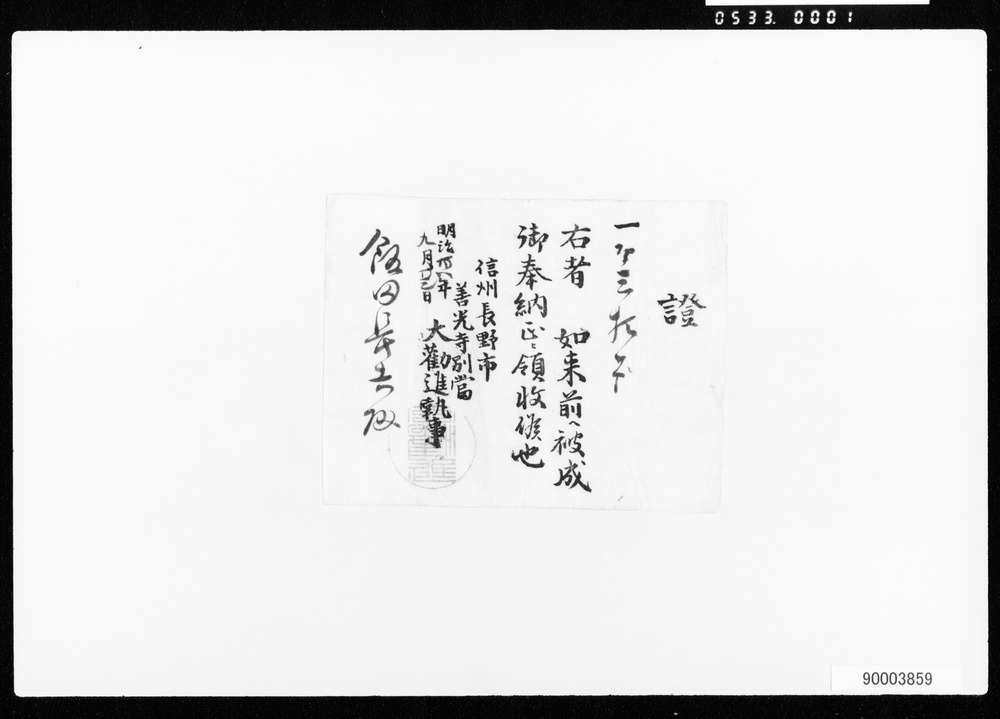 0533. 0001
證
一金三拾
右者 如来前へ被成
御奉納正ニ領收候也
信州長野市
善光寺別當
大勸進執事
明治四年
九月廿三日
飯田長吉殿
90003859